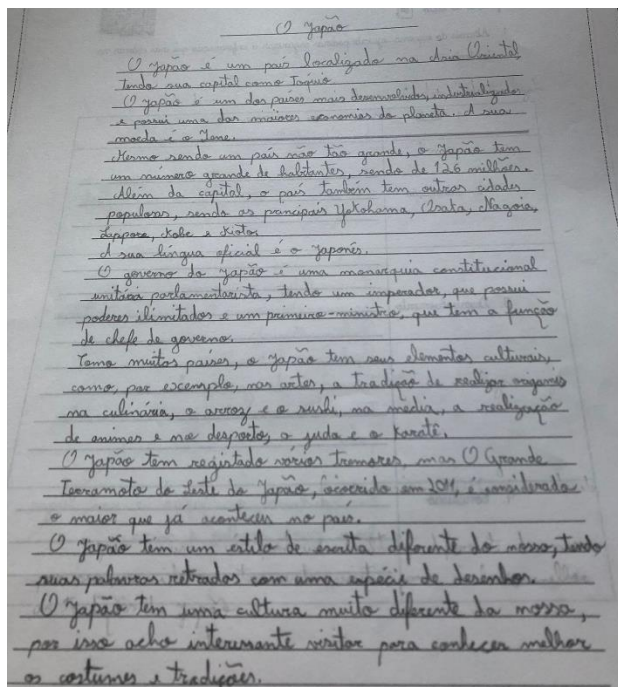 O Japão
O Japão é um país localizado na Ásia Oriental
tendo sua capital como Tóquio
O Japão é um dos países mais desenvolvidos, industrializados
e possui uma das maiores economias do planeta. A sua
moeda é o Iene.
Mesmo sendo um país não tão grande, o Japão tem
um número grande de habitantes, sendo de 126 milhões.
Além da capital, o país também tem outras cidades
populosas, sendo as principais Yokohama, Osaka, Nagoia,
Sapporo, Kobe e Kioto.
A sua língua oficial é o Japonês.
O governo do Japão é uma monarquia constitucional
unitária parlamentarista, tendo um imperador, que possui
poderes ilimitados e um primeiro-ministro, que tem a função
de chefe de governo.
Como muitos países, o Japão tem seus elementos culturais,
como, por excemplo, nas artes, a tradição de realizar origamis
na culinária, o arroz e o sushi, na media, a realização
de animes e no desporto, o judo e o Karatê.
O Japão tem registado vários tremores, mas O Grande
Terramoto do Leste do Japão, ocorrido em 2011, é considerado
o maior que já aconteceu no país.
O Japão tem um estilo de escrita diferente do nosso, tendo
suas palavras retradas com uma espécie de desenhos.
O Japão tem uma cultura muito diferente da nossa,
por isso acho interessante visitar para conhecer melhor
os costumes e tradições.